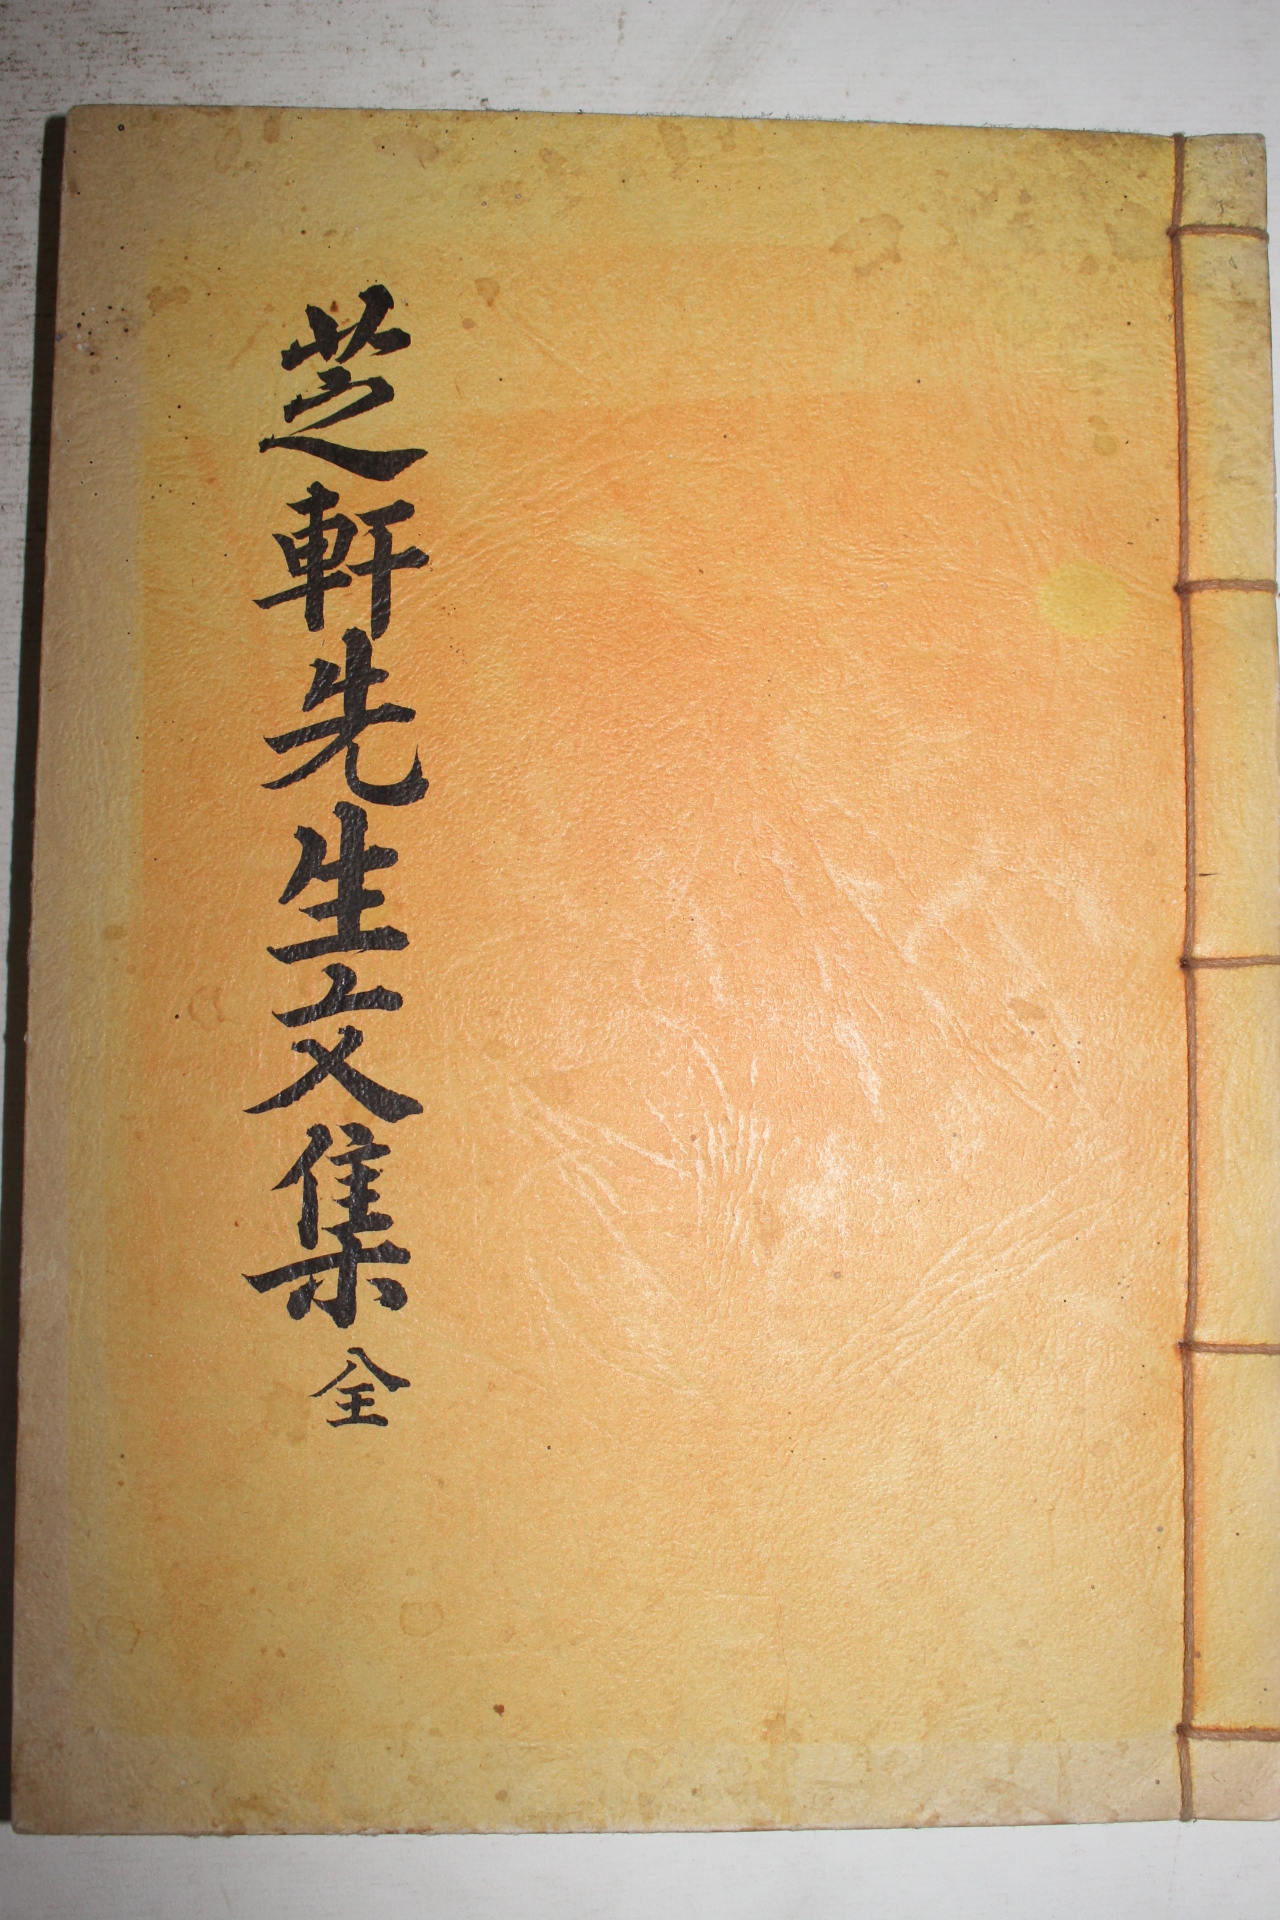 芝軒先生文集 全